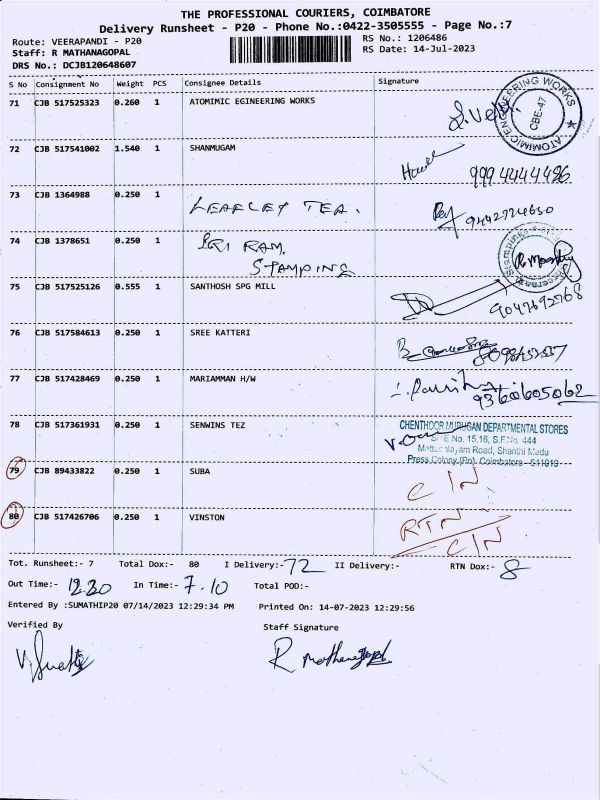 THE PROFESSIONAL COURIERS, COIMBATORE
Delivery Runsheet - P20 - Phone No.:0422-3505555 - Page No.:7
Route: VEERAPANDI - P20
RS No.: 1206486
Staff: R MATHANAGOPAL
RS Date: 14-Jul-2023
DRS No.: DCJB120648607
S No Consignment No Weight PCS Consignee Details Signature
71 CJB 517525323 0.260 1 ATOMIMIC EGINEERING WORKS
ATOMIMIC ENGINEERING WORKS
CBE-47
72 CJB 517541002 1.540 1 SHANMUGAM
999 4444486
73 CJB 1364988 0.250 1 LEAFLEY TEA.
9442724650
74 CJB 1378651 0.250 1 SRI RAM.
STAMPING
75 CJB 517525126 0.555 1 SANTHOSH SPG MILL
9047692768
76 CJB 517584613 0.250 1 SREE KATTERI
77 CJB 517428469 0.250 1 MARIAMMAN H/W
9360605062
78 CJB 517361931 0.250 1 SENWINS TEZ
CHENTHOOR MURUGAN DEPARTMENTAL STORES
No. 15,16, S.F.No. 444
Road, Shanthi Medu
Press Colony (Po), Coimbatore - 641019
79 CJB 89433822 0.250 1 SUBA
C/N
80 CJB 517426706 0.250 1 VINSTON
RTN
C/N
Tot. Runsheet:- 7 Total Dox:- 80 I Delivery:- 72 II Delivery:- RTN Dox:- 8
Out Time:- 12.30 In Time:- 7.10 Total POD:-
Entered By :SUMATHIP20 07/14/2023 12:29:34 PM Printed On: 14-07-2023 12:29:56
Verified By
Staff Signature
R Mathanagopal